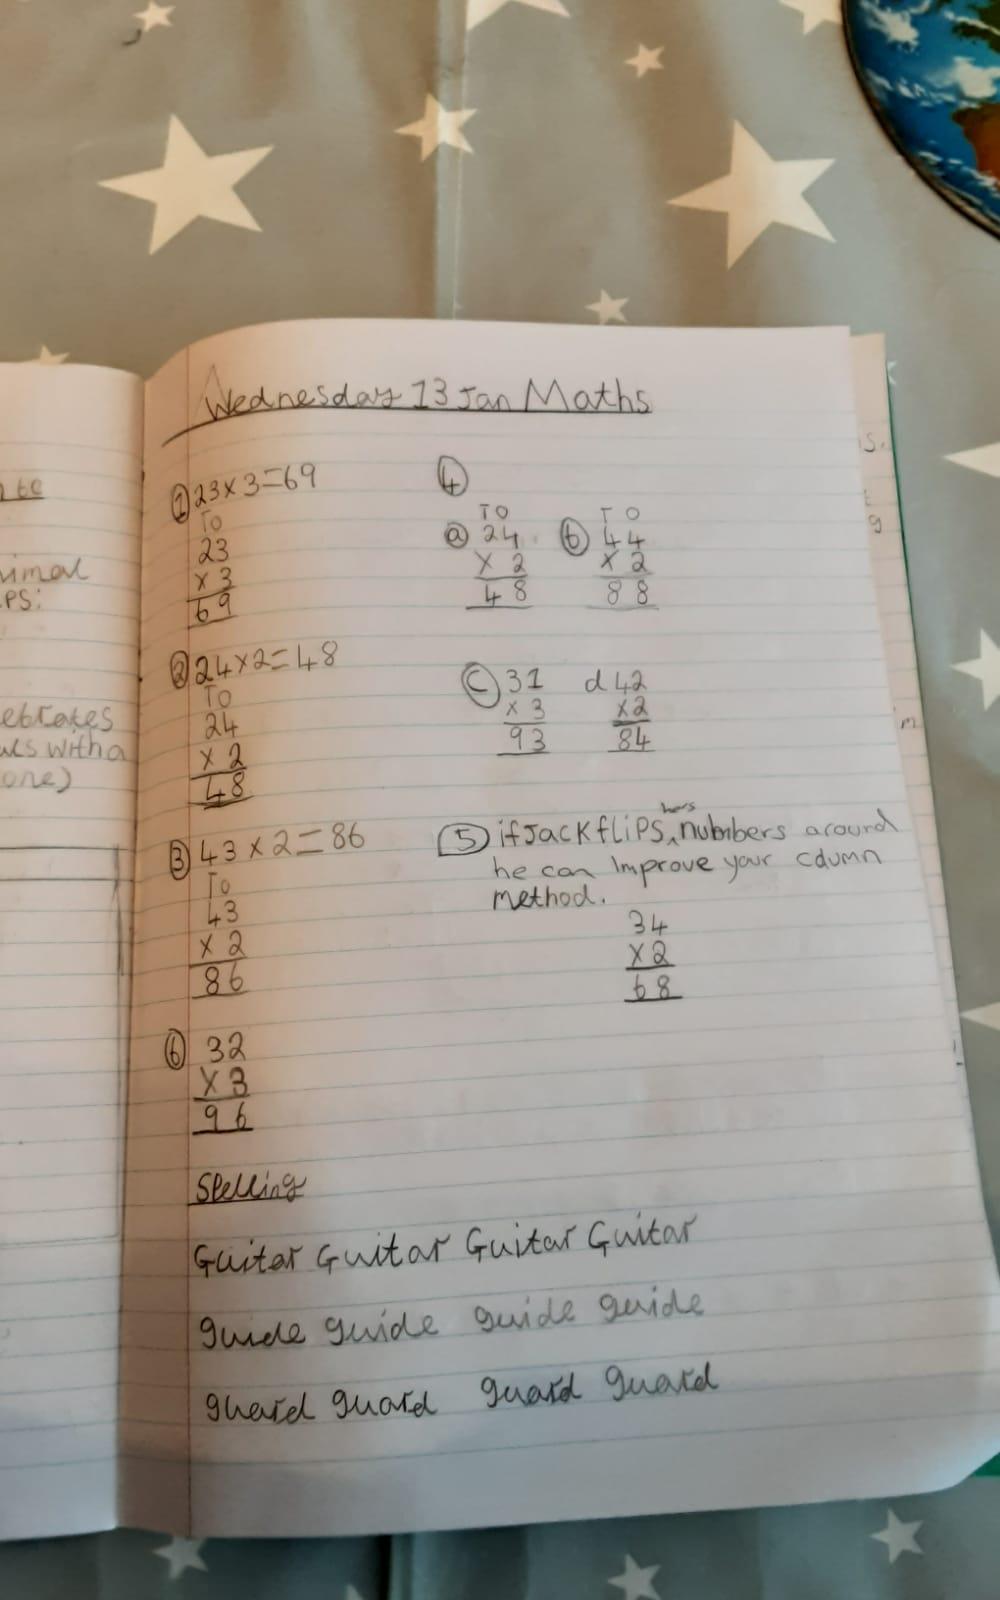 Wednesday 13 Jan Maths
① 23×3=69
TO
23
× 3
69
② 24×2=48
TO
24
× 2
48
③ 43×2=86
TO
43
× 2
86
⑥ 32
× 3
96
④
ⓐ TO
24
× 2
48
ⓑ TO
44
× 2
88
ⓒ 31
× 3
93
d 42
×2
84
⑤ if Jack fLiPS numbers around
he can Improve your column
method.
34
×2
68
Spelling
Guitar Guitar Guitar Guitar
guide guide guide guide
guard guard guard guard
nimal
PS:
ebrates
with a
one)